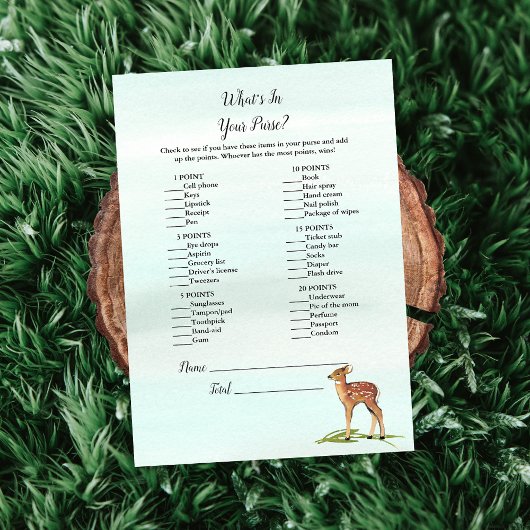 What's In
Your Purse?
Check to see if you have these items in your purse and add
up the points. Whoever has the most points, wins!
1 POINT
____Cell phone
____Keys
____Lipstick
____Receipt
____Pen
3 POINTS
____Eye drops
____Aspirin
____Grocery list
____Driver's license
____Tweezers
5 POINTS
____Sunglasses
____Tampon/pad
____Toothpick
____Band-aid
____Gum
10 POINTS
____Book
____Hair spray
____Hand cream
____Nail polish
____Package of wipes
15 POINTS
____Ticket stub
____Candy bar
____Socks
____Diaper
____Flash drive
20 POINTS
____Underwear
____Pic of the mom
____Perfume
____Passport
____Condom
Name ____________________
Total ____________________